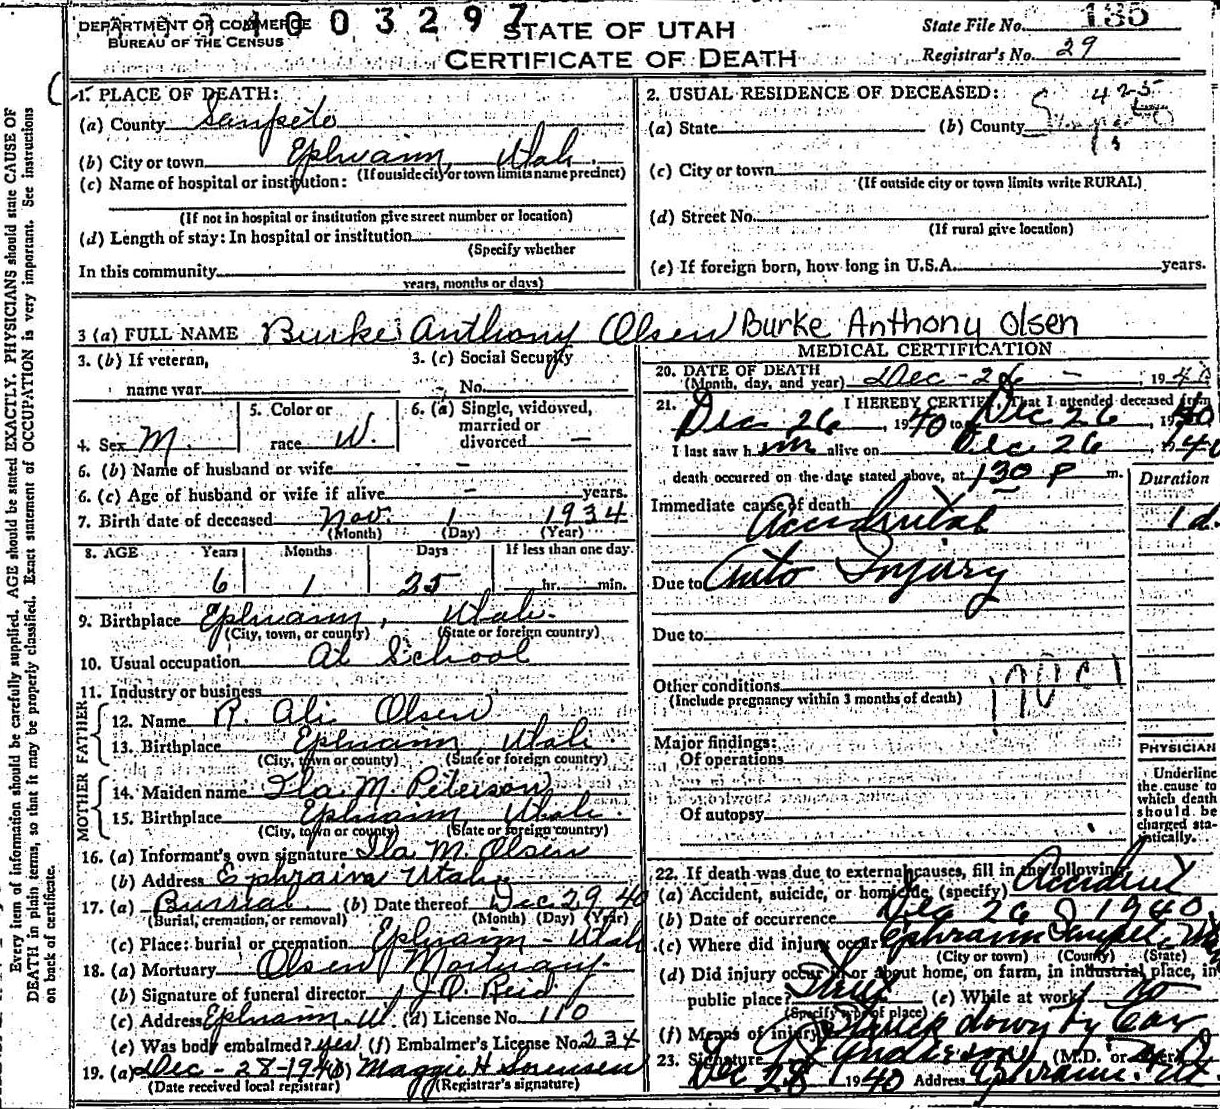 DEPARTMENT OF COMMERCE
BUREAU OF THE CENSUS
003297
STATE OF UTAH
CERTIFICATE OF DEATH
State File No. 185
Registrar's No. 29
1. PLACE OF DEATH:
(a) County Sanpete
(b) City or town Ephraim, Utah.
(If outside city or town limits name precinct)
(c) Name of hospital or institution:
(If not in hospital or institution give street number or location)
(d) Length of stay: In hospital or institution
(Specify whether
In this community
years, months or days)
2. USUAL RESIDENCE OF DECEASED:
(a) State (b) County
(c) City or town
(If outside city or town limits write RURAL)
(d) Street No.
(If rural give location)
(e) If foreign born, how long in U.S.A. years.
3 (a) FULL NAME Burke Anthony Olsen Burke Anthony Olsen
3. (b) If veteran,
name war
3. (c) Social Security
No.
4. Sex M.
5. Color or
race W.
6. (a) Single, widowed,
married or
divorced —
6. (b) Name of husband or wife —
6. (c) Age of husband or wife if alive - years.
7. Birth date of deceased Nov. 1 1934
(Month) (Day) (Year)
8. AGE Years Months Days If less than one day
6 1 25 hr. min.
9. Birthplace Ephraim, Utah.
(City, town, or county) (State or foreign country)
10. Usual occupation At School
11. Industry or business
FATHER
12. Name R. Ali Olsen
13. Birthplace Ephraim, Utah
(City, town or county) (State or foreign country)
MOTHER
14. Maiden name Ila M. Peterson
15. Birthplace Ephraim, Utah.
(City, town or county) (State or foreign country)
16. (a) Informant's own signature Ila M. Olsen
(b) Address Ephraim Utah
17. (a) Burial (b) Date thereof Dec 29 40
(Burial, cremation, or removal) (Month) (Day) (Year)
(c) Place: burial or cremation Ephraim - Utah
18. (a) Mortuary Olsen Mortuary
(b) Signature of funeral director
(c) Address Ephraim U. (d) License No. 110
(e) Was body embalmed? yes (f) Embalmer's License No. 234
19. (a) Dec - 28-1940 Maggie H Sorensen
(Date received local registrar) (Registrar's signature)
MEDICAL CERTIFICATION
20. DATE OF DEATH
(Month, day, and year) Dec - 26 - 1940
21. I HEREBY CERTIFY, That I attended deceased from
Dec 26, 1940 to Dec 26, 1940
I last saw him alive on Dec 26, 1940
death occurred on the date stated above, at 130 P m.
Duration
Immediate cause of death
Accidental 1 d.
Due to Auto Injury
Due to
Other conditions
(Include pregnancy within 3 months of death)
Major findings:
Of operations
Of autopsy
PHYSICIAN
Underline
the cause to
which death
should be
charged sta-
tistically.
22. If death was due to external causes, fill in the following:
(a) Accident, suicide, or homicide (specify) Accident
(b) Date of occurrence Dec 26 1940
(c) Where did injury occur Ephraim Sanpete
(City or town) (County) (State)
(d) Did injury occur in or about home, on farm, in industrial place, in
public place? Street (e) While at work? no
(Specify type of place)
(f) Means of injury Struck down by Car
23. Signature Anderson (M.D. or
Dec 28 1940 Address Ephraim. Ut
Every item of information should be carefully supplied. AGE should be stated EXACTLY. PHYSICIANS should state CAUSE OF
DEATH in plain terms, so that it may be properly classified. Exact statement of OCCUPATION is very important. See instructions
on back of certificate.